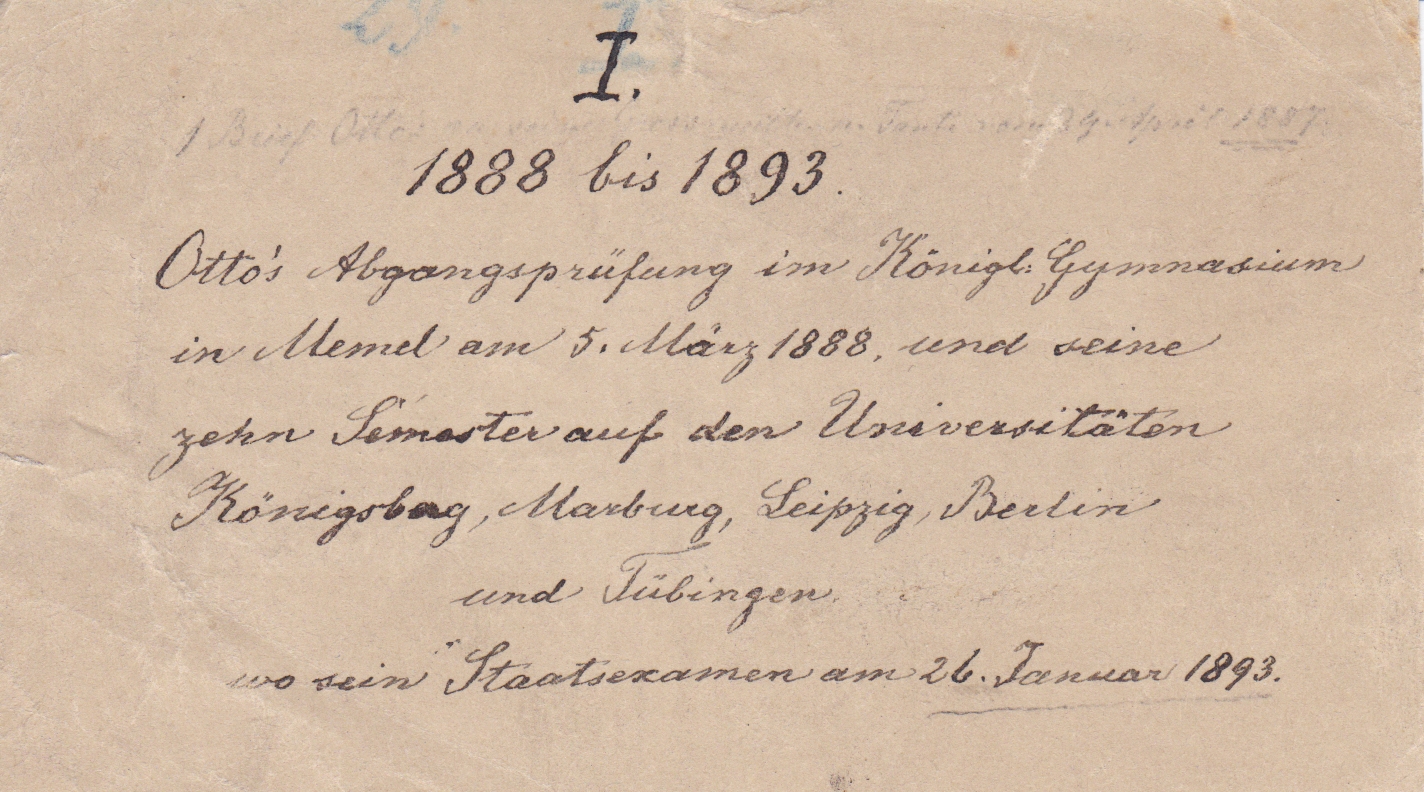 I.
1 Brief Otto's April 1887.
1888 bis 1893.
Otto's Abgangsprüfung im Königl: Gymnasium
in Memel am 5. März 1888, und seine
zehn Semester auf den Universitäten
Königsberg, Marburg, Leipzig, Berlin
und Tübingen.
wo sein Staatsexamen am 26. Januar 1893.